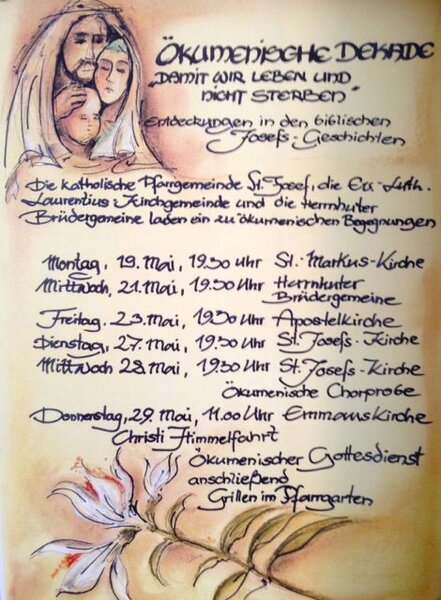 ÖKUMENISCHE DEKADE
„DAMIT WIR LEBEN UND
NICHT STERBEN"
Entdeckungen in den biblischen
Josefs-Geschichten
Die katholische Pfarrgemeinde St. Josef, die Ev.-Luth.
Laurentius Kirchgemeinde und die Herrnhuter
Brüdergemeine laden ein zu ökumenischen Begegnungen
Montag, 19. Mai, 19.30 Uhr St.-Markus-Kirche
Mittwoch, 21. Mai, 19.30 Uhr Herrnhuter
Brüdergemeine
Freitag, 23. Mai, 19.30 Uhr Apostelkirche
Dienstag, 27. Mai, 19.30 Uhr St. Josefs-Kirche
Mittwoch 28. Mai, 19.30 Uhr St. Josefs-Kirche
Ökumenische Chorprobe
Donnerstag, 29. Mai, 11.00 Uhr Emmauskirche
Christi Himmelfahrt
Ökumenischer Gottesdienst
anschließend
Grillen im Pfarrgarten